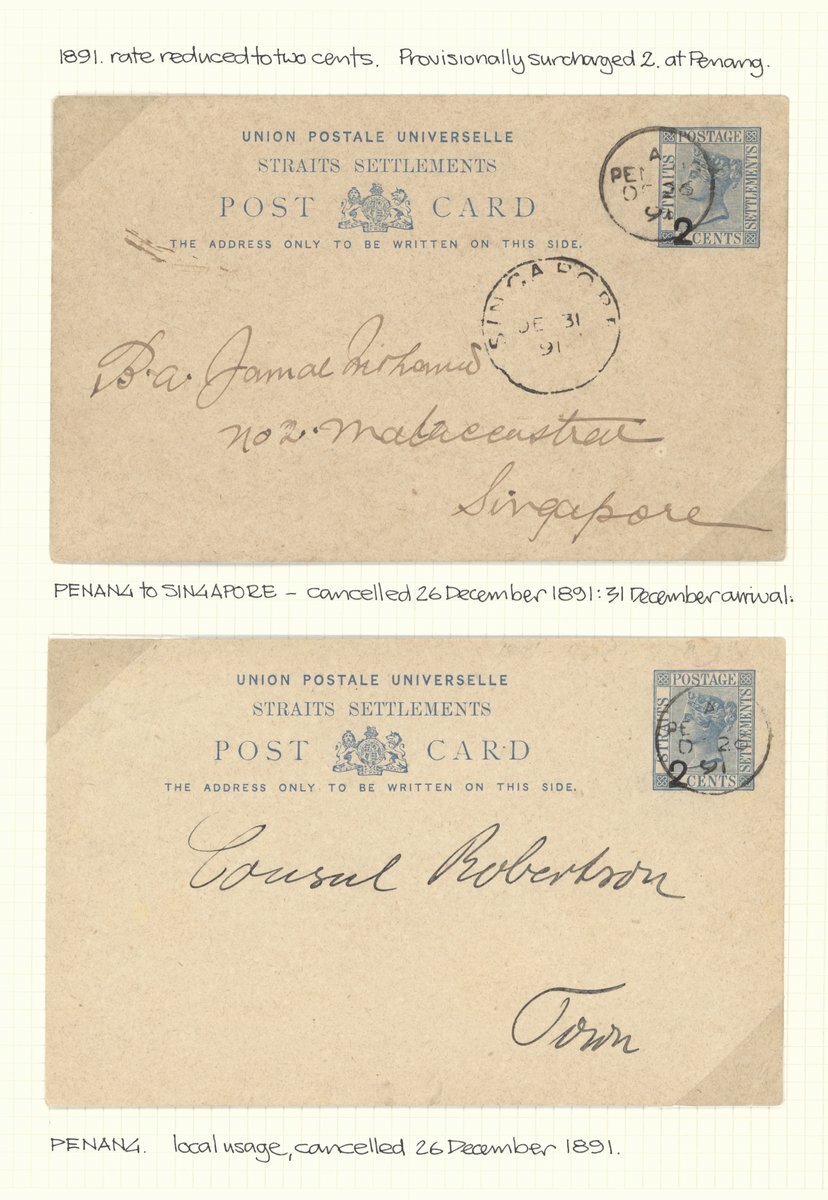 1891. rate reduced to two cents. Provisionally surcharged 2. at Penang.
UNION POSTALE UNIVERSELLE
STRAITS SETTLEMENTS
POST CARD
THE ADDRESS ONLY TO BE WRITTEN ON THIS SIDE.
POSTAGE
STRAITS
SETTLEMENTS
2 CENTS
A
PEN
26
91
SINGAPORE
DE 31
91
B.a. Jamal
No 2.
Singapore
PENANG to SINGAPORE – cancelled 26 December 1891: 31 December arrival.
UNION POSTALE UNIVERSELLE
STRAITS SETTLEMENTS
POST CARD
THE ADDRESS ONLY TO BE WRITTEN ON THIS SIDE.
POSTAGE
STRAITS
SETTLEMENTS
2 CENTS
A
PE
D 26
91
Consul Robertson
Town
PENANG. local usage, cancelled 26 December 1891.